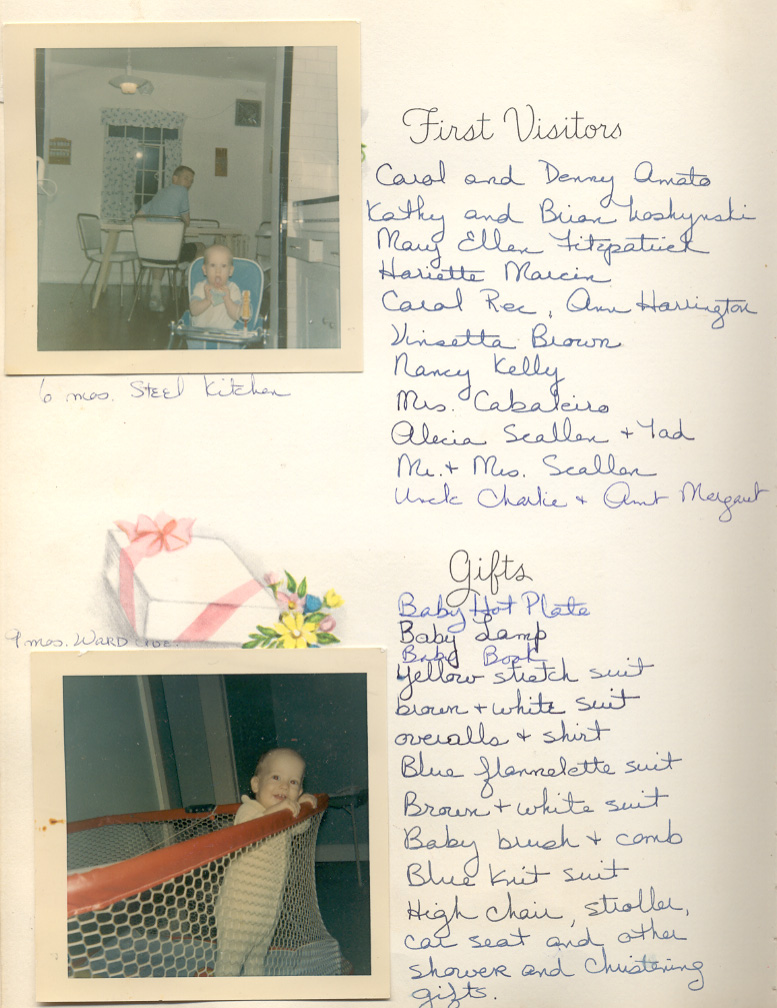 First Visitors
Carol and Denny Amato
Kathy and Brian
Mary Ellen Fitzpatrick
Hariette Marcin
Carol Rec, Ann Harrington
Vinsetta Brown
Nancy Kelly
Mrs. Cabaleiro
Alecia Scallen + Tad
Mr. + Mrs. Scallen
Uncle Charlie + Aunt Margaret
6 mos. Steel Kitchen
Gifts
Baby Hot Plate
Baby Lamp
Baby Book
yellow stretch suit
brown + white suit
overalls + shirt
Blue flannelette suit
Brown + white suit
Baby brush + comb
Blue knit suit
High chair, stroller,
car seat and other
shower and Christening
gifts.
9 mos. WARD